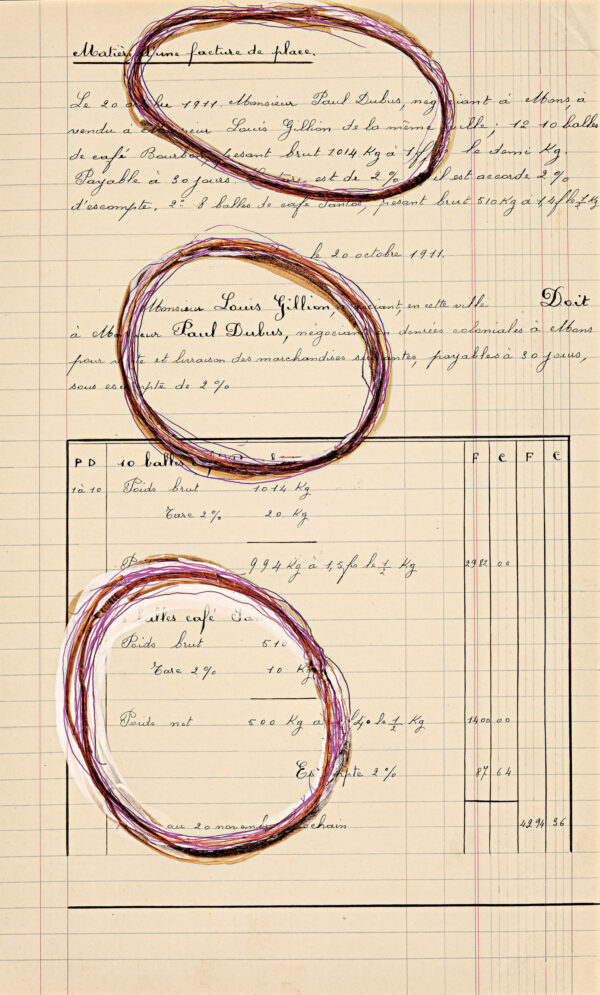 Matière d'une facture de place.
Le 20 octobre 1911. Monsieur Paul Dubus, négociant à Mons, à
vendu à Monsieur Louis Gillion de la même ville; 1º 10 balles
de café Bourbon, pesant brut 1014 Kg à le demi Kg.
Payable à 30 jours. est de 2 % il est accordé 2 %
d'escompte. 2º 8 balles de café Santos, pesant brut 510 Kg à 1,4 f le ½ Kg
le 20 octobre 1911.
Monsieur Louis Gillion, négociant, en cette ville Doit
à Monsieur Paul Dubus, négociant en denrées coloniales à Mons
pour vente et livraison des marchandises suivantes, payables à 30 jours,
sous escompte de 2 %
P D 10 balles F C F C
1 à 10 Poids brut 1014 Kg
Tare 2 % 20 Kg
994 Kg à 1,5 f le ½ Kg 2982 00
balles café
Poids brut 510
Tare 2 % 10 Kg
Poids net 500 Kg à le ½ Kg 1400 00
Escompte 2 % 87 64
au 20 novembre prochain 4294 36